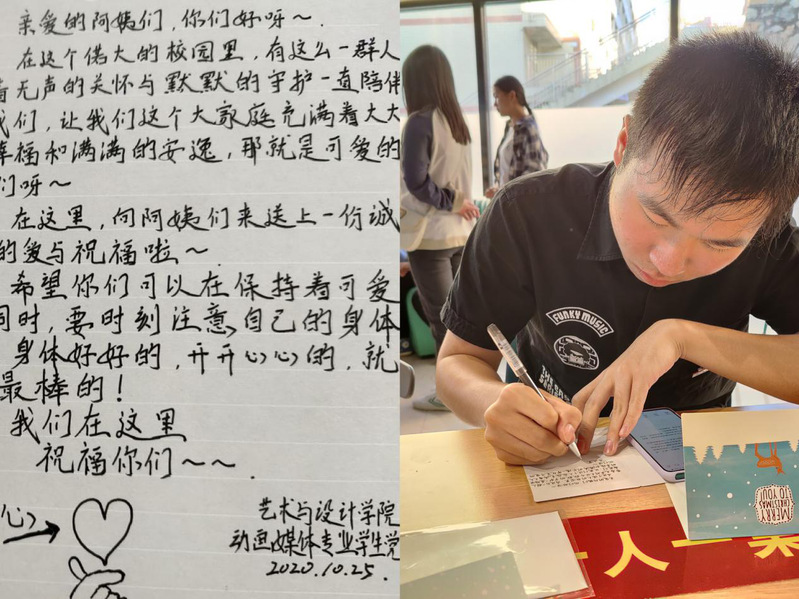 亲爱的阿姨们，你们好呀～
在这个偌大的校园里，有这么一群人
着无声的关怀与默默的守护一直陪伴
我们，让我们这个大家庭充满着大大
幸福和满满的安逸，那就是可爱的
们呀～
在这里，向阿姨们来送上一份诚
的爱与祝福啦～
希望你们可以在保持着可爱
同时，要时刻注意自己的身体
身体好好的，开开心心的，就
最棒的！
我们在这里
祝福你们～～
心
艺术与设计学院
动画媒体专业学生党
2020.10.25.
FUNKY MUSIC
MERRY
CHRISTMAS
TO YOU!
一人一